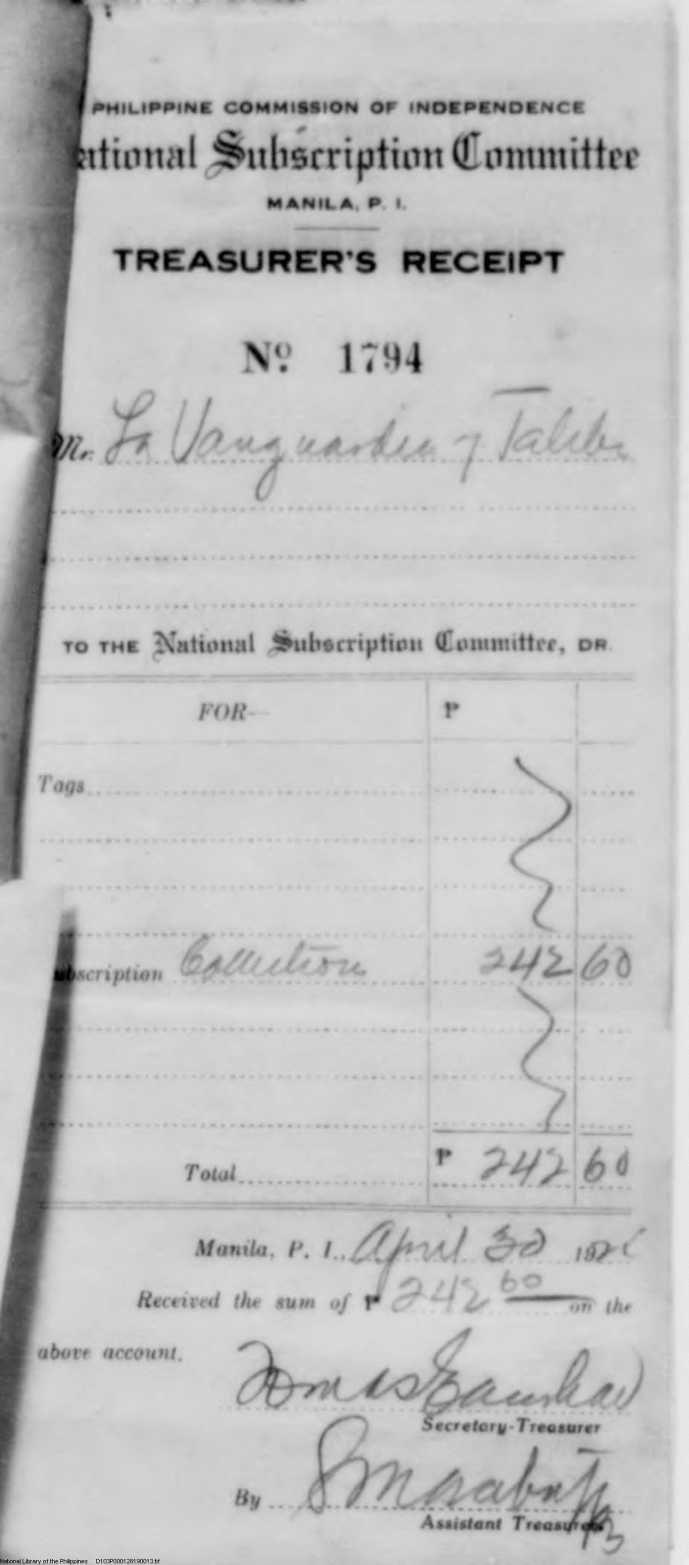 PHILIPPINE COMMISSION OF INDEPENDENCE
ational Subscription Committee
MANILA, P. I.
TREASURER'S RECEIPT
Nº 1794
Mr. La Vanguardia y Taliba
TO THE National Subscription Committee, DR.
FOR— ₱
Tags
ubscription Collection 242 60
Total ₱ 242 60
Manila, P. I., April 30 192
Received the sum of ₱ 242 60 on the
above account.
Tomas Earnshaw
Secretary-Treasurer
By
Assistant Treasurer
National Library of the Philippines D103P000128190013.tif